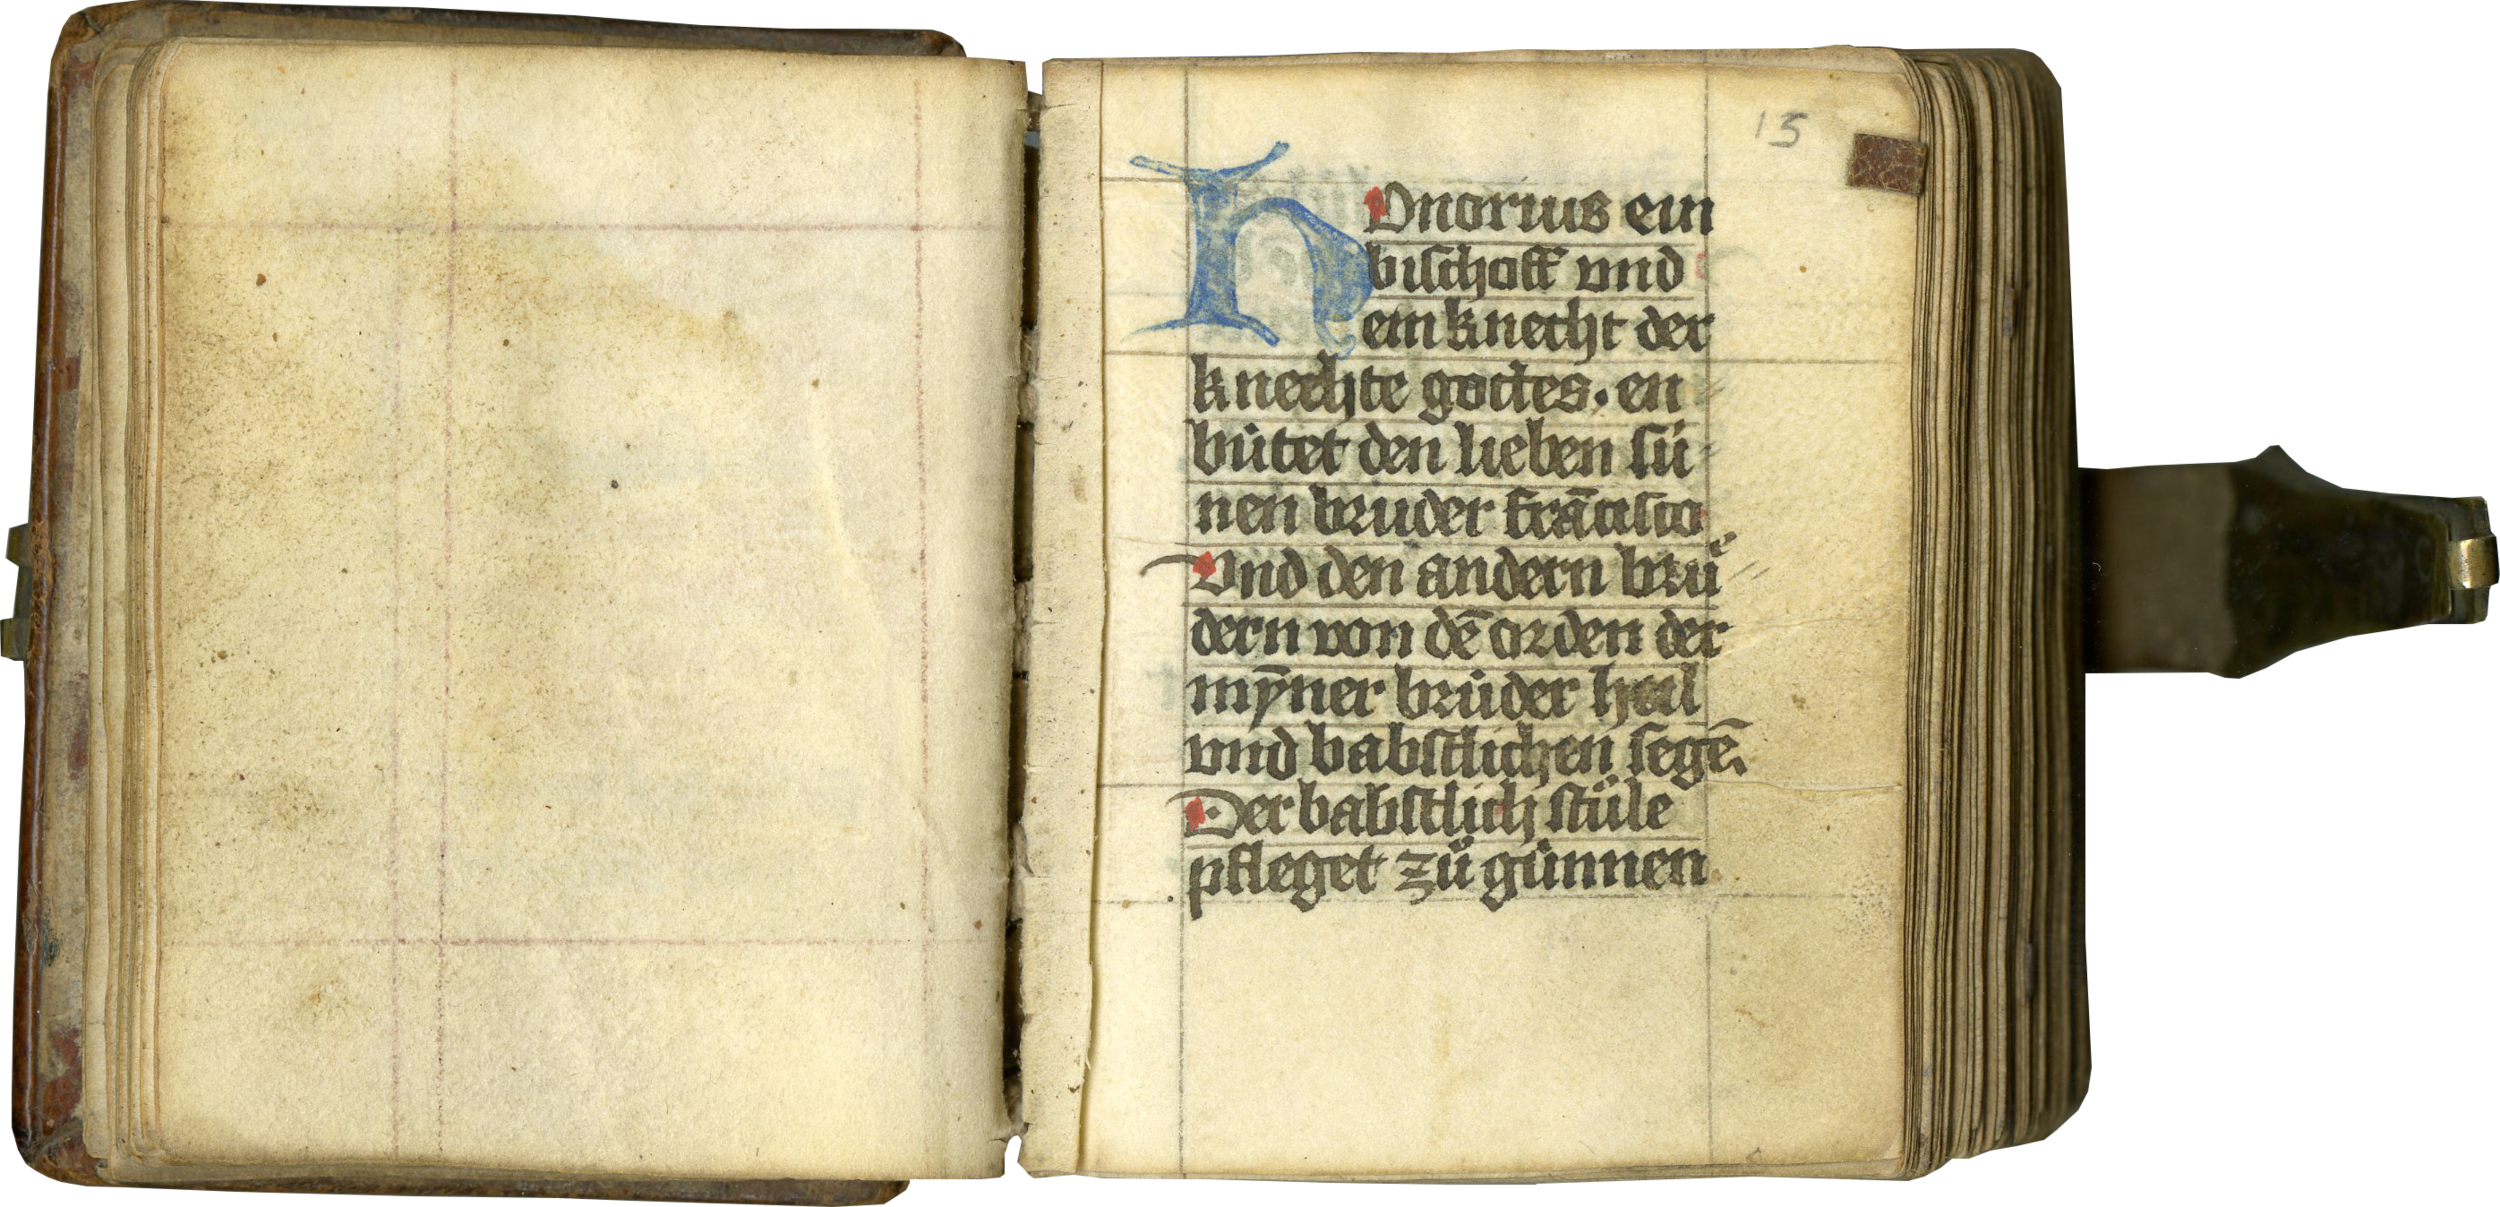 15
HOnorius ein
bischoff vnd
ein knecht der
knechte gottes. en
bütet den lieben sü
nen bruder francisco
Vnd den andern bruͤ
dern von dē orden der
mȳner brüder heil
vnd babstlichen segē.
Der babstlich stüle
pfleget zuͤ günnen